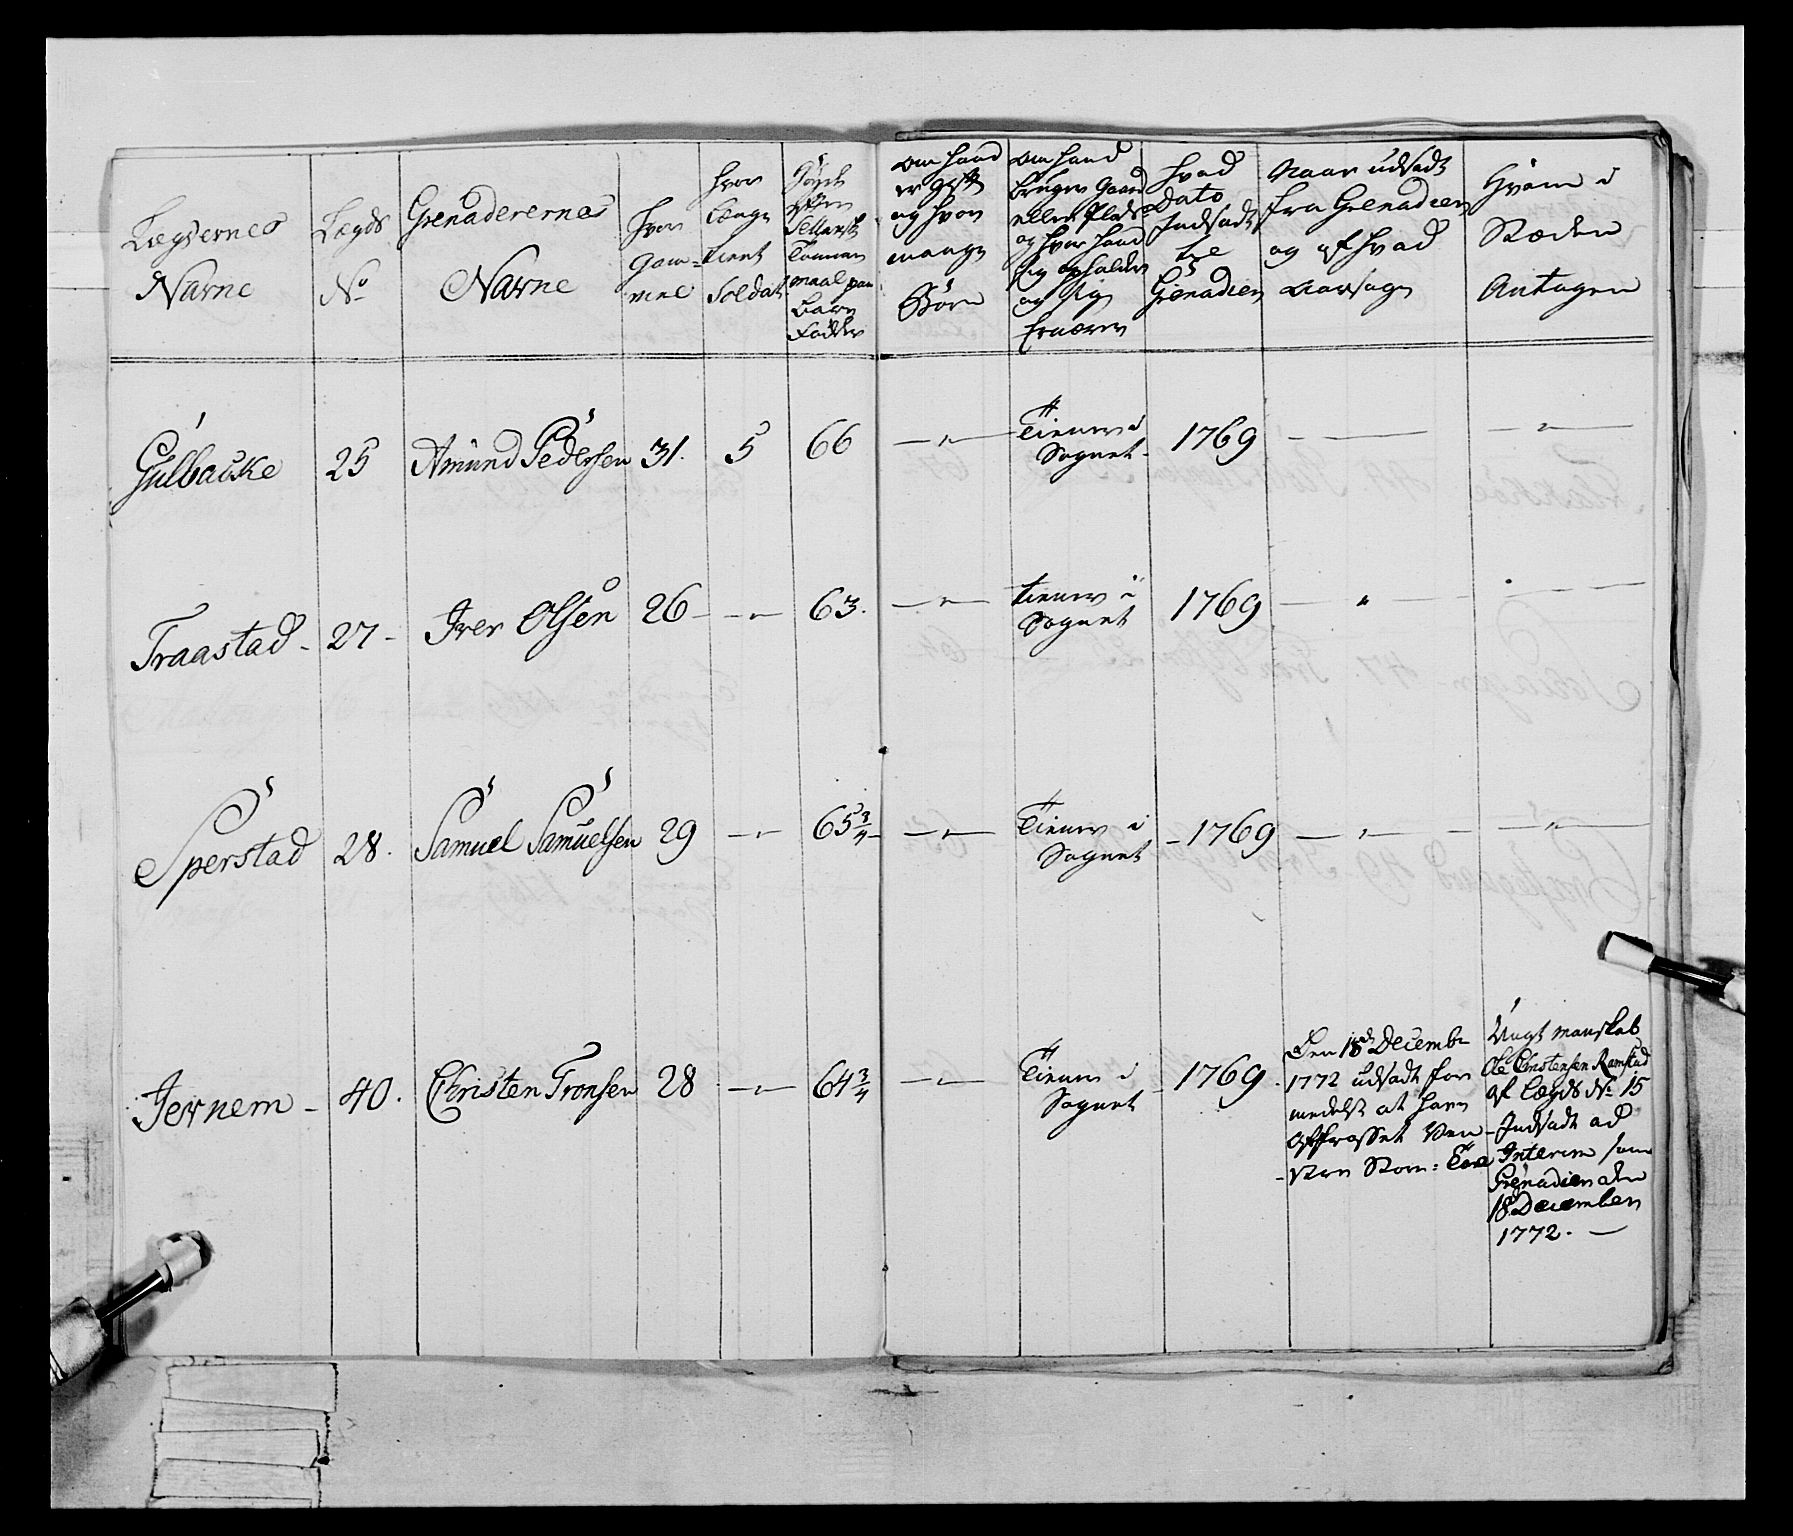 Lægdernes
Navne
Lægds
No
Grenaderernes
Navne
hvor
Gam=
mel
hvor
længe
tient
Soldat
Høyde
efter
Sellands
Tomme
maal paa
bare
Fødder
om hand
er gift
og hvor
mange
Børn
om hand
bruger Gaard
eller Plads
og hvor hand
sig opholder
og sig
Ernærer
hvad
Dato
Indsadt
til
Grenadeer
Naar udsadt
fra Grenadeer
og af hvad
Aarsage
Hvem i
Stæden
Antagen
Gulbacke 25 Amund Pedersen 31. 5 66 — " — Tiener i Sognet 1769 — — — " —
Traastad - 27 - Iver Olsen 26 - - " - 63. — " — tiener i Sognet 1769 — " — — —
Sperstad 28. Samuel Samuelsen 29 — " — 65 3/4 - — " — Tiener i Sognet - 1769 — " — — " —
Jernem - 40. Christen Tronsen 28 — " — 64 3/4 — " — Tiener i Sognet - 1769.
Den 18de Decembr
1772 udsadt for
medelst at have
afsnasset
Ung mandskab
Ole Christensen Ramstad
af Lægds No 15
Indsadt ad
Interim som
Grenadeer den
18 December
1772. —